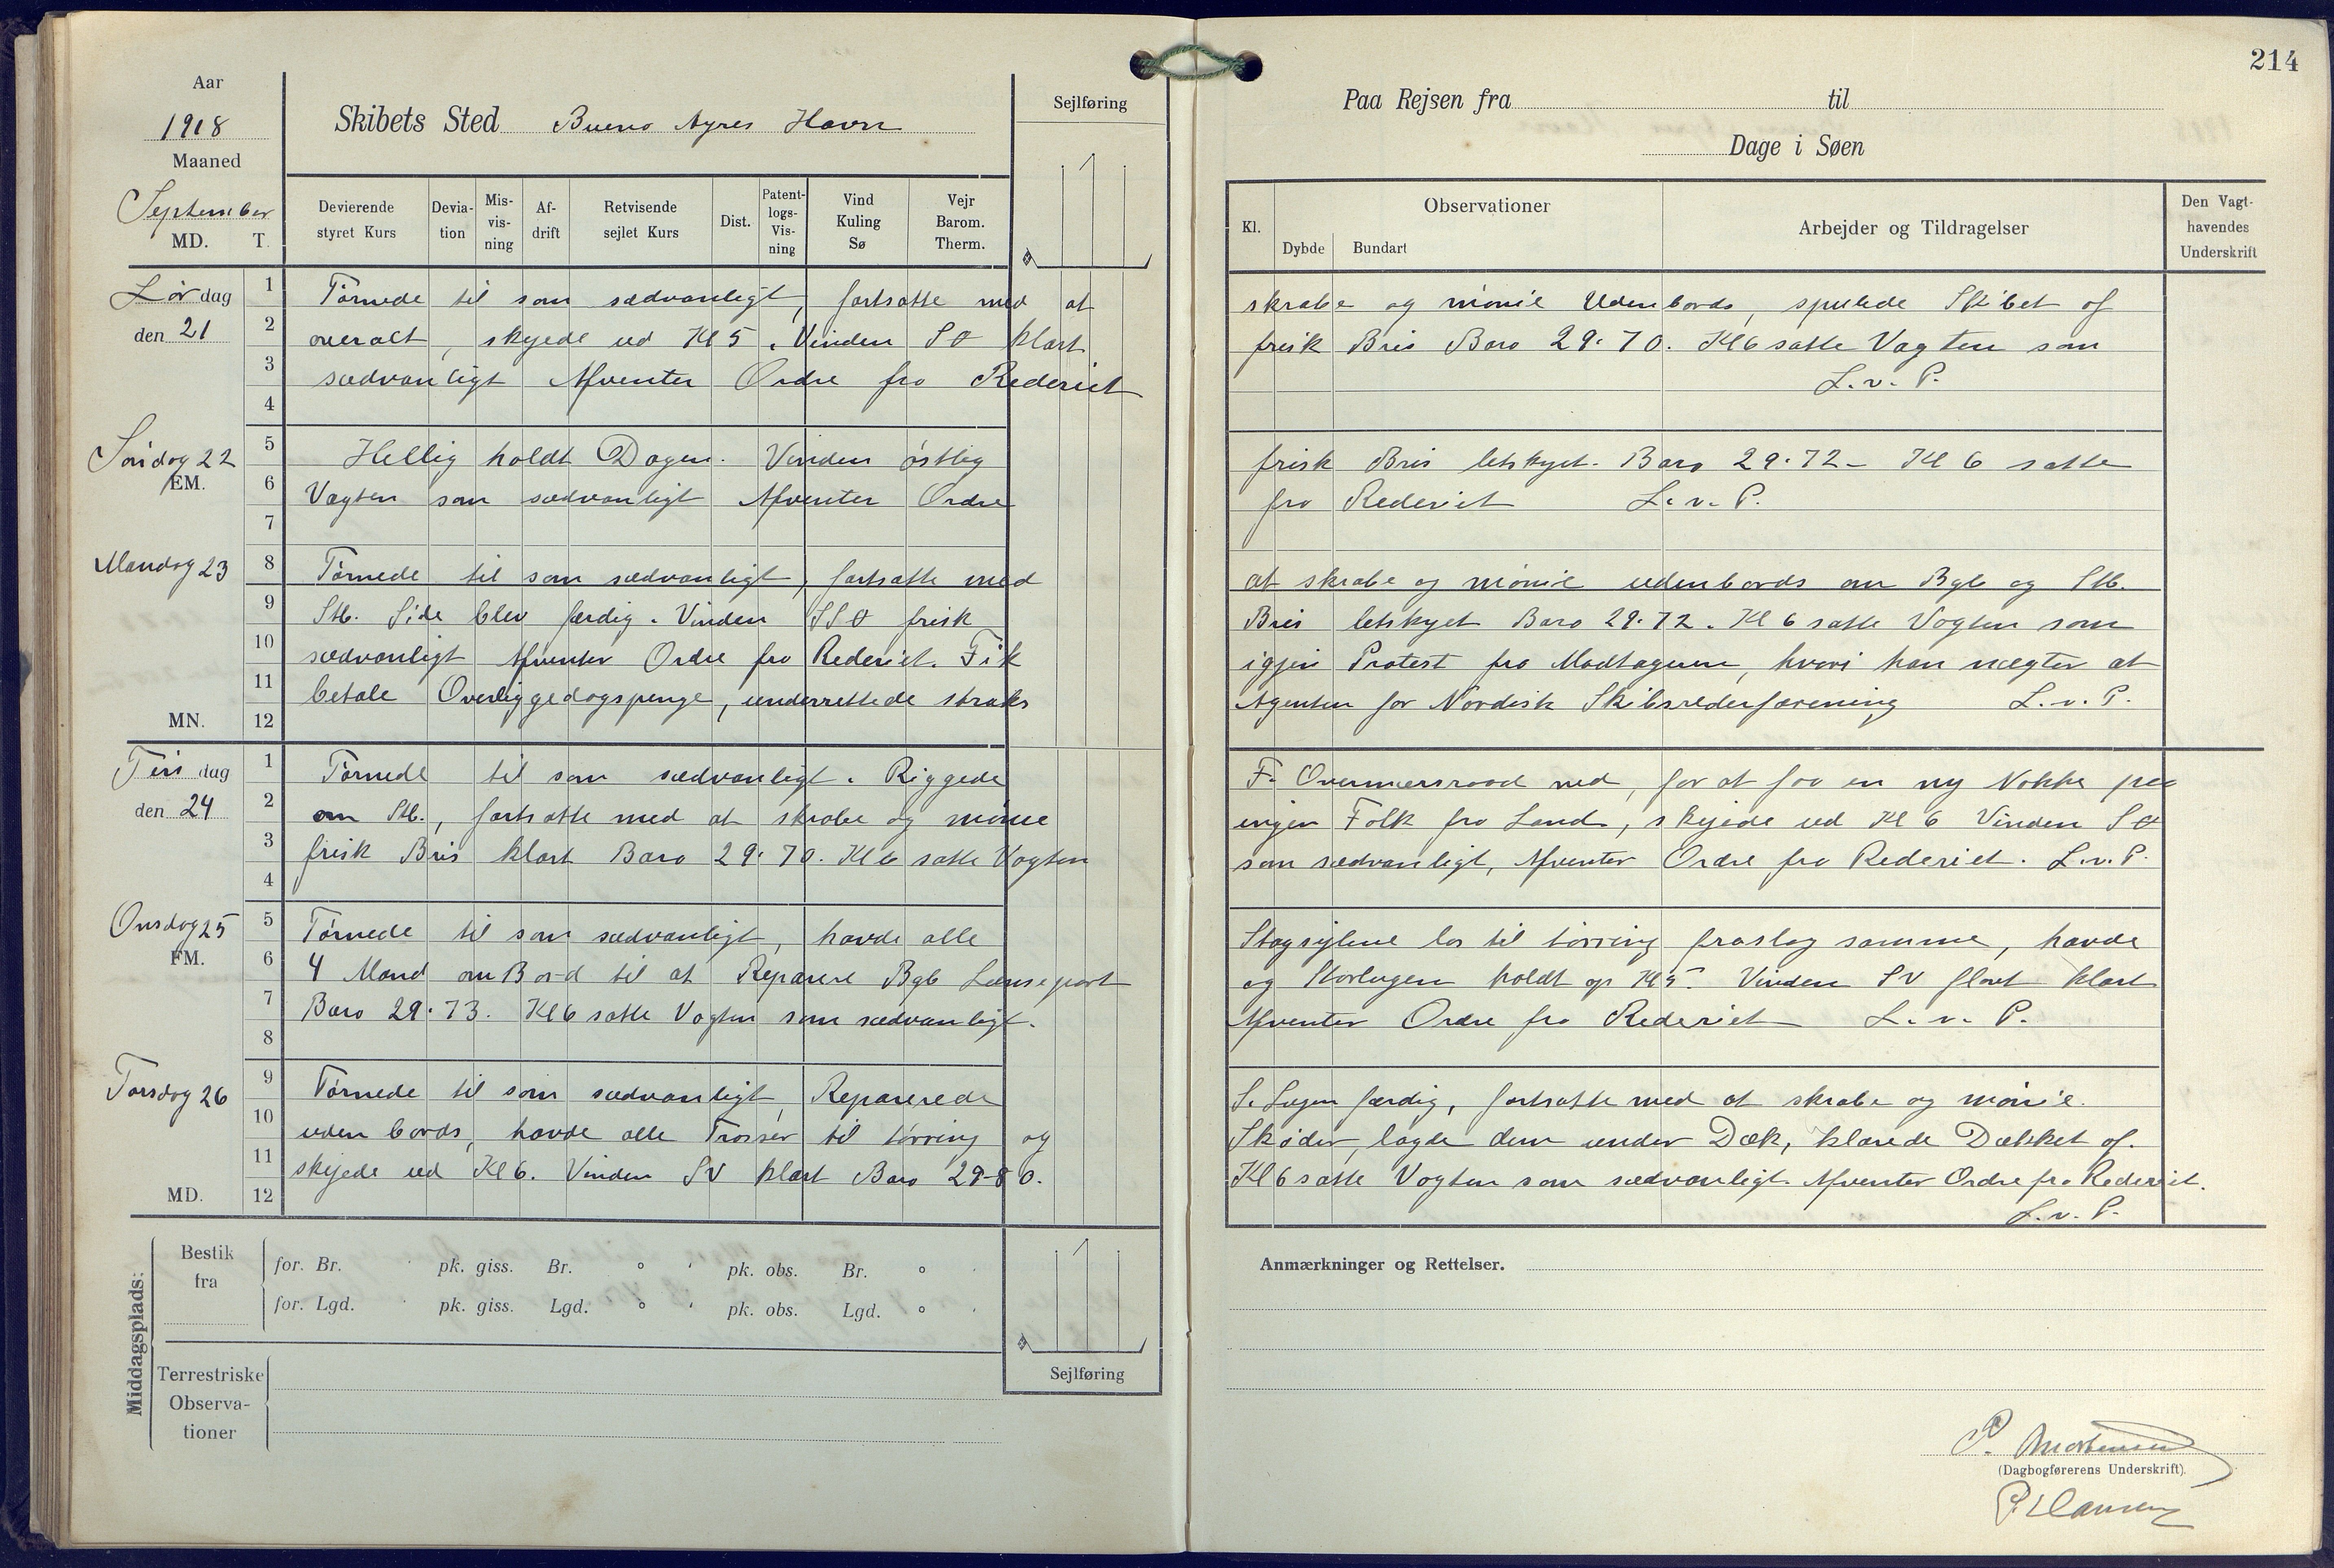 Aar
1918
Maaned
September
MD. T.
Skibets Sted Bueno Ayres Havn
Sejlføring
Devierende styret Kurs
Deviation
Misvisning
Afdrift
Retvisende sejlet Kurs
Dist.
Patentlogs-Visning
Vind Kuling Sø
Vejr Barom. Therm.
214
Paa Rejsen fra til
Dage i Søen
Kl.
Observationer
Dybde Bundart
Arbejder og Tildragelser
Den Vagthavendes Underskrift
Lørdag
den 21
1 2 3 4
Tørnede til som sædvanligt, fortsatte med at skrabe og mønie Udenbords, spulede Skibet af
overalt, skyede ud Kl 5. Vinden SØ klart frisk Bris Baro 29.70. Kl 6 satte Vagten som
sædvanligt Afventer Ordre fra Rederiet L.v.P.
Søndag 22
EM.
5 6 7
Hellig holdt Dagen. Vinden østlig frisk Bris letskyet. Baro 29.72 - Kl 6 satte
Vagten som sædvanligt Afventer Ordre fra Rederiet L.v.P.
Mandag 23
8 9 10 11 12
MN.
Tørnede til som sædvanligt, fortsatte med at skrabe og mønie udenbords om Bgb og Stb.
Stb. Side blev færdig. Vinden SSØ frisk Bris letskyet Baro 29.72. Kl 6 satte Vagten som
sædvanligt Afventer Ordre fra Rederiet. Fik igjen Protest fra Modtageren, hvori han nægter at
betale Overliggedagspenge, underrettede straks Agenten for Nordisk Skibsrederforening L.v.P.
Tirsdag
den 24
1 2 3 4
Tørnede til som sædvanligt. Riggede F. Overmersraa ned, for at faa en ny Nokke paa
om Stb., fortsatte med at skrabe og mønie ingen Folk fra Land, skejede ud Kl 6 Vinden SØ
frisk Bris klart Baro 29.70. Kl 6 satte Vagten som sædvanligt, Afventer Ordre fra Rederiet. L.v.P.
Onsdag 25
FM.
5 6 7 8
Tørnede til som sædvanligt, havde alle Stagsejlene los til tørring fraslog samme, havde
4 Mand om Bord til at Reparere Bgb Lænseport og Storlugen holdt op Kl 5. Vinden SV flovt klart
Baro 29.73. Kl 6 satte Vagten som sædvanligt. Afventer Ordre fra Rederiet L.v.P.
Torsdag 26
9 10 11 12
MD.
Tørnede til som sædvanligt, Reparerede S. Lugen færdig, fortsatte med at skrabe og mønie
uden bords, havde alle Trosser til tørring og Skøder, lagde dem under Dæk, klarede Dækket af.
skejede ud Kl 6. Vinden SV klart Baro 29-80. Kl 6 satte Vagten som sædvanligt. Afventer Ordre fra Rederiet.
L.v.P.
Middagsplads:
Bestik fra
for. Br. pk. giss. Br. ° ' pk. obs. Br. ° '
for. Lgd. pk. giss. Lgd. ° ' pk. obs. Lgd. ° '
Sejlføring
Terrestriske Observationer
Anmærkninger og Rettelser.
P. Mortensen
(Dagbogførerens Underskrift).
P. Hansen